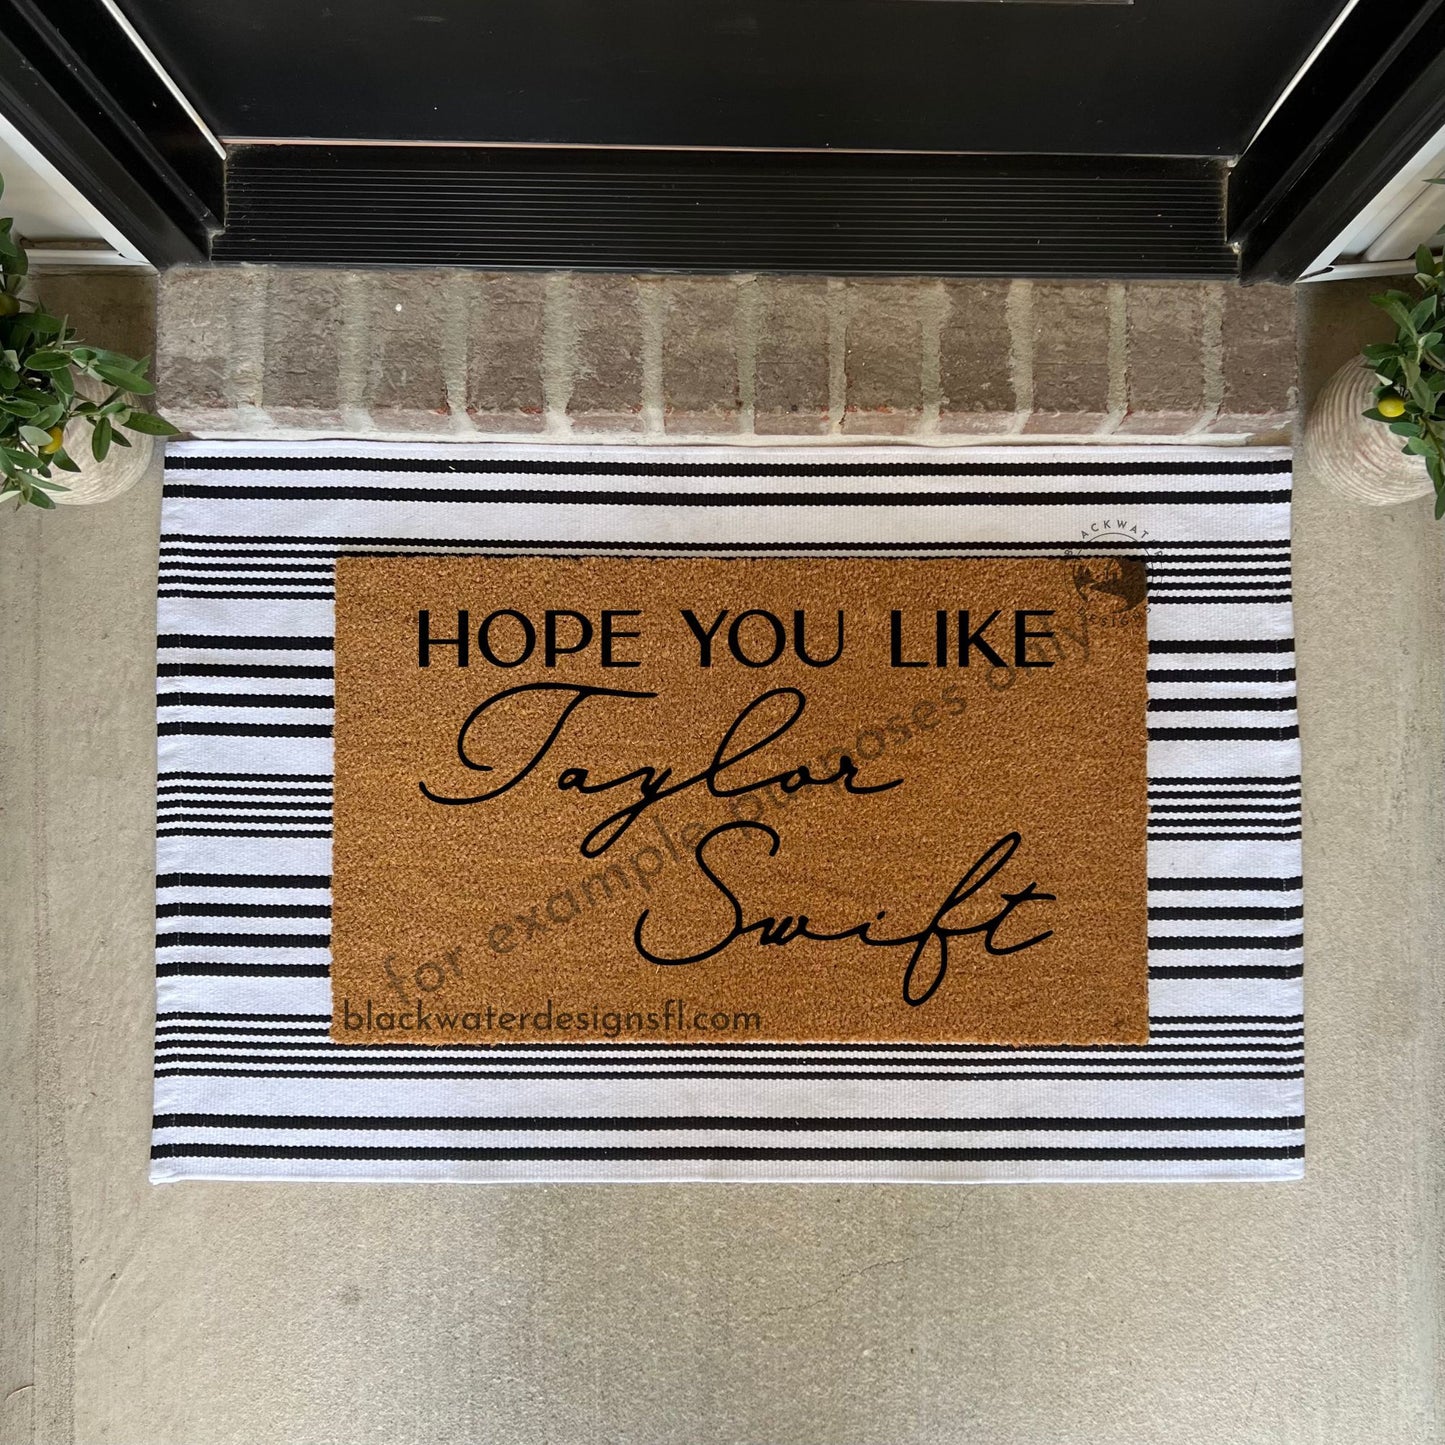 BLACKWATER
DESIGNS
HOPE YOU LIKE
Taylor
Swift
for example purposes only
blackwaterdesignsfl.com